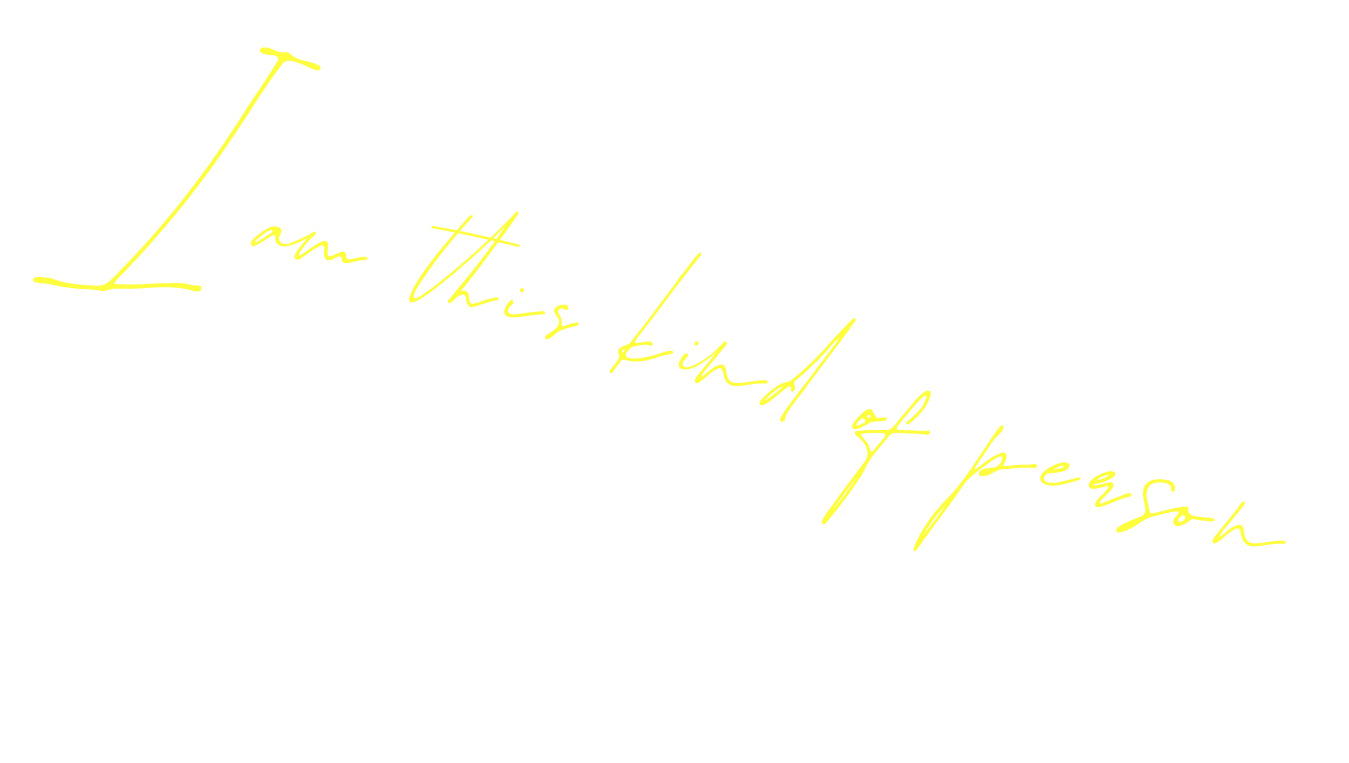 I am this kind of person